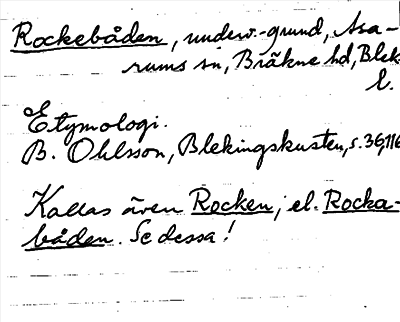 Rockebåden, underv.-grund, Asa-
rums sn, Bräkne hd, Blek.
l.
Etymologi.
B. Ohlsson, Blekingskusten, s. 36, 116
Kallas även Rocken; el. Rocka-
båden. Se dessa!